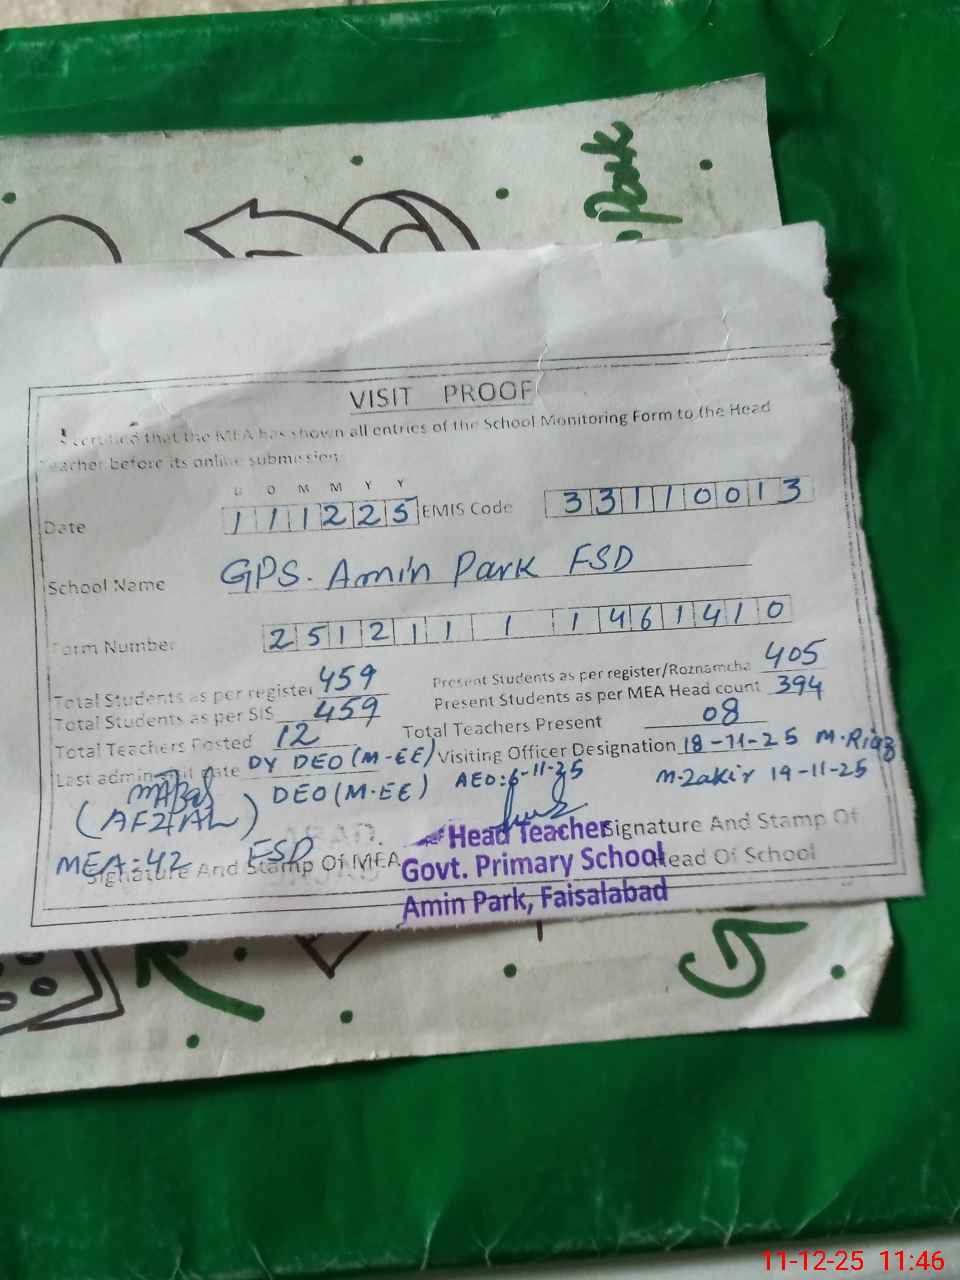 Park
VISIT PROOF
certified that the MEA has shown all entries of the School Monitoring Form to the Head
Teacher before its online submission
D D M M Y Y
Date 111225 EMIS Code 33110013
School Name GPS. Amin Park FSD
Form Number 251211 1 1461410
Total Students as per register 459 Present Students as per register/Roznamcha 405
Total Students as per SIS 459 Present Students as per MEA Head count 394
Total Teachers Posted 12 Total Teachers Present 08
Last admin visit date DY DEO (M-EE) Visiting Officer Designation 18-11-25 M.Riaz
DEO (M.EE) AEO: 6-11-25 M.Zakir 19-11-25
(AFZAL)
MEA:42 FSD
Signature And Stamp Of MEA
Signature And Stamp Of
Head Of School
Head Teacher
Govt. Primary School
Amin Park, Faisalabad
11-12-25 11:46